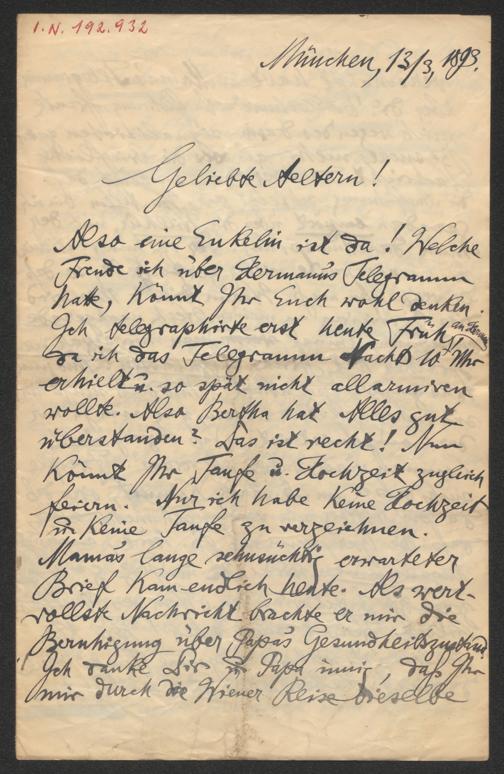 I.N. 192.932
München, 13/3, 1893.
Geliebte Aeltern!
Also eine Enkelin ist da! Welche
Freude ich über Hermann's Telegramm
hatte, könnt Ihr Euch wohl denken.
Ich telegraphirte erst heute Früh an Hermann,
da ich das Telegramm Nachts 10 Uhr
erhielt u. so spät nicht allarmiren
wollte. Also Bertha hat Alles gut
überstanden? Das ist recht! Nun
könnt Ihr Taufe u. Hochzeit zugleich
feiern. Nur ich habe keine Hochzeit
u. keine Taufe zu verzeichnen.
Mama's lange sehnsüchtig erwarteter
Brief kam endlich heute. Als wert-
vollste Nachricht brachte er mir die
Beruhigung über Papa's Gesundheitszustand.
Ich danke Dir u. Papa innig, daß Ihr
mir durch die Wiener Reise dieselbe